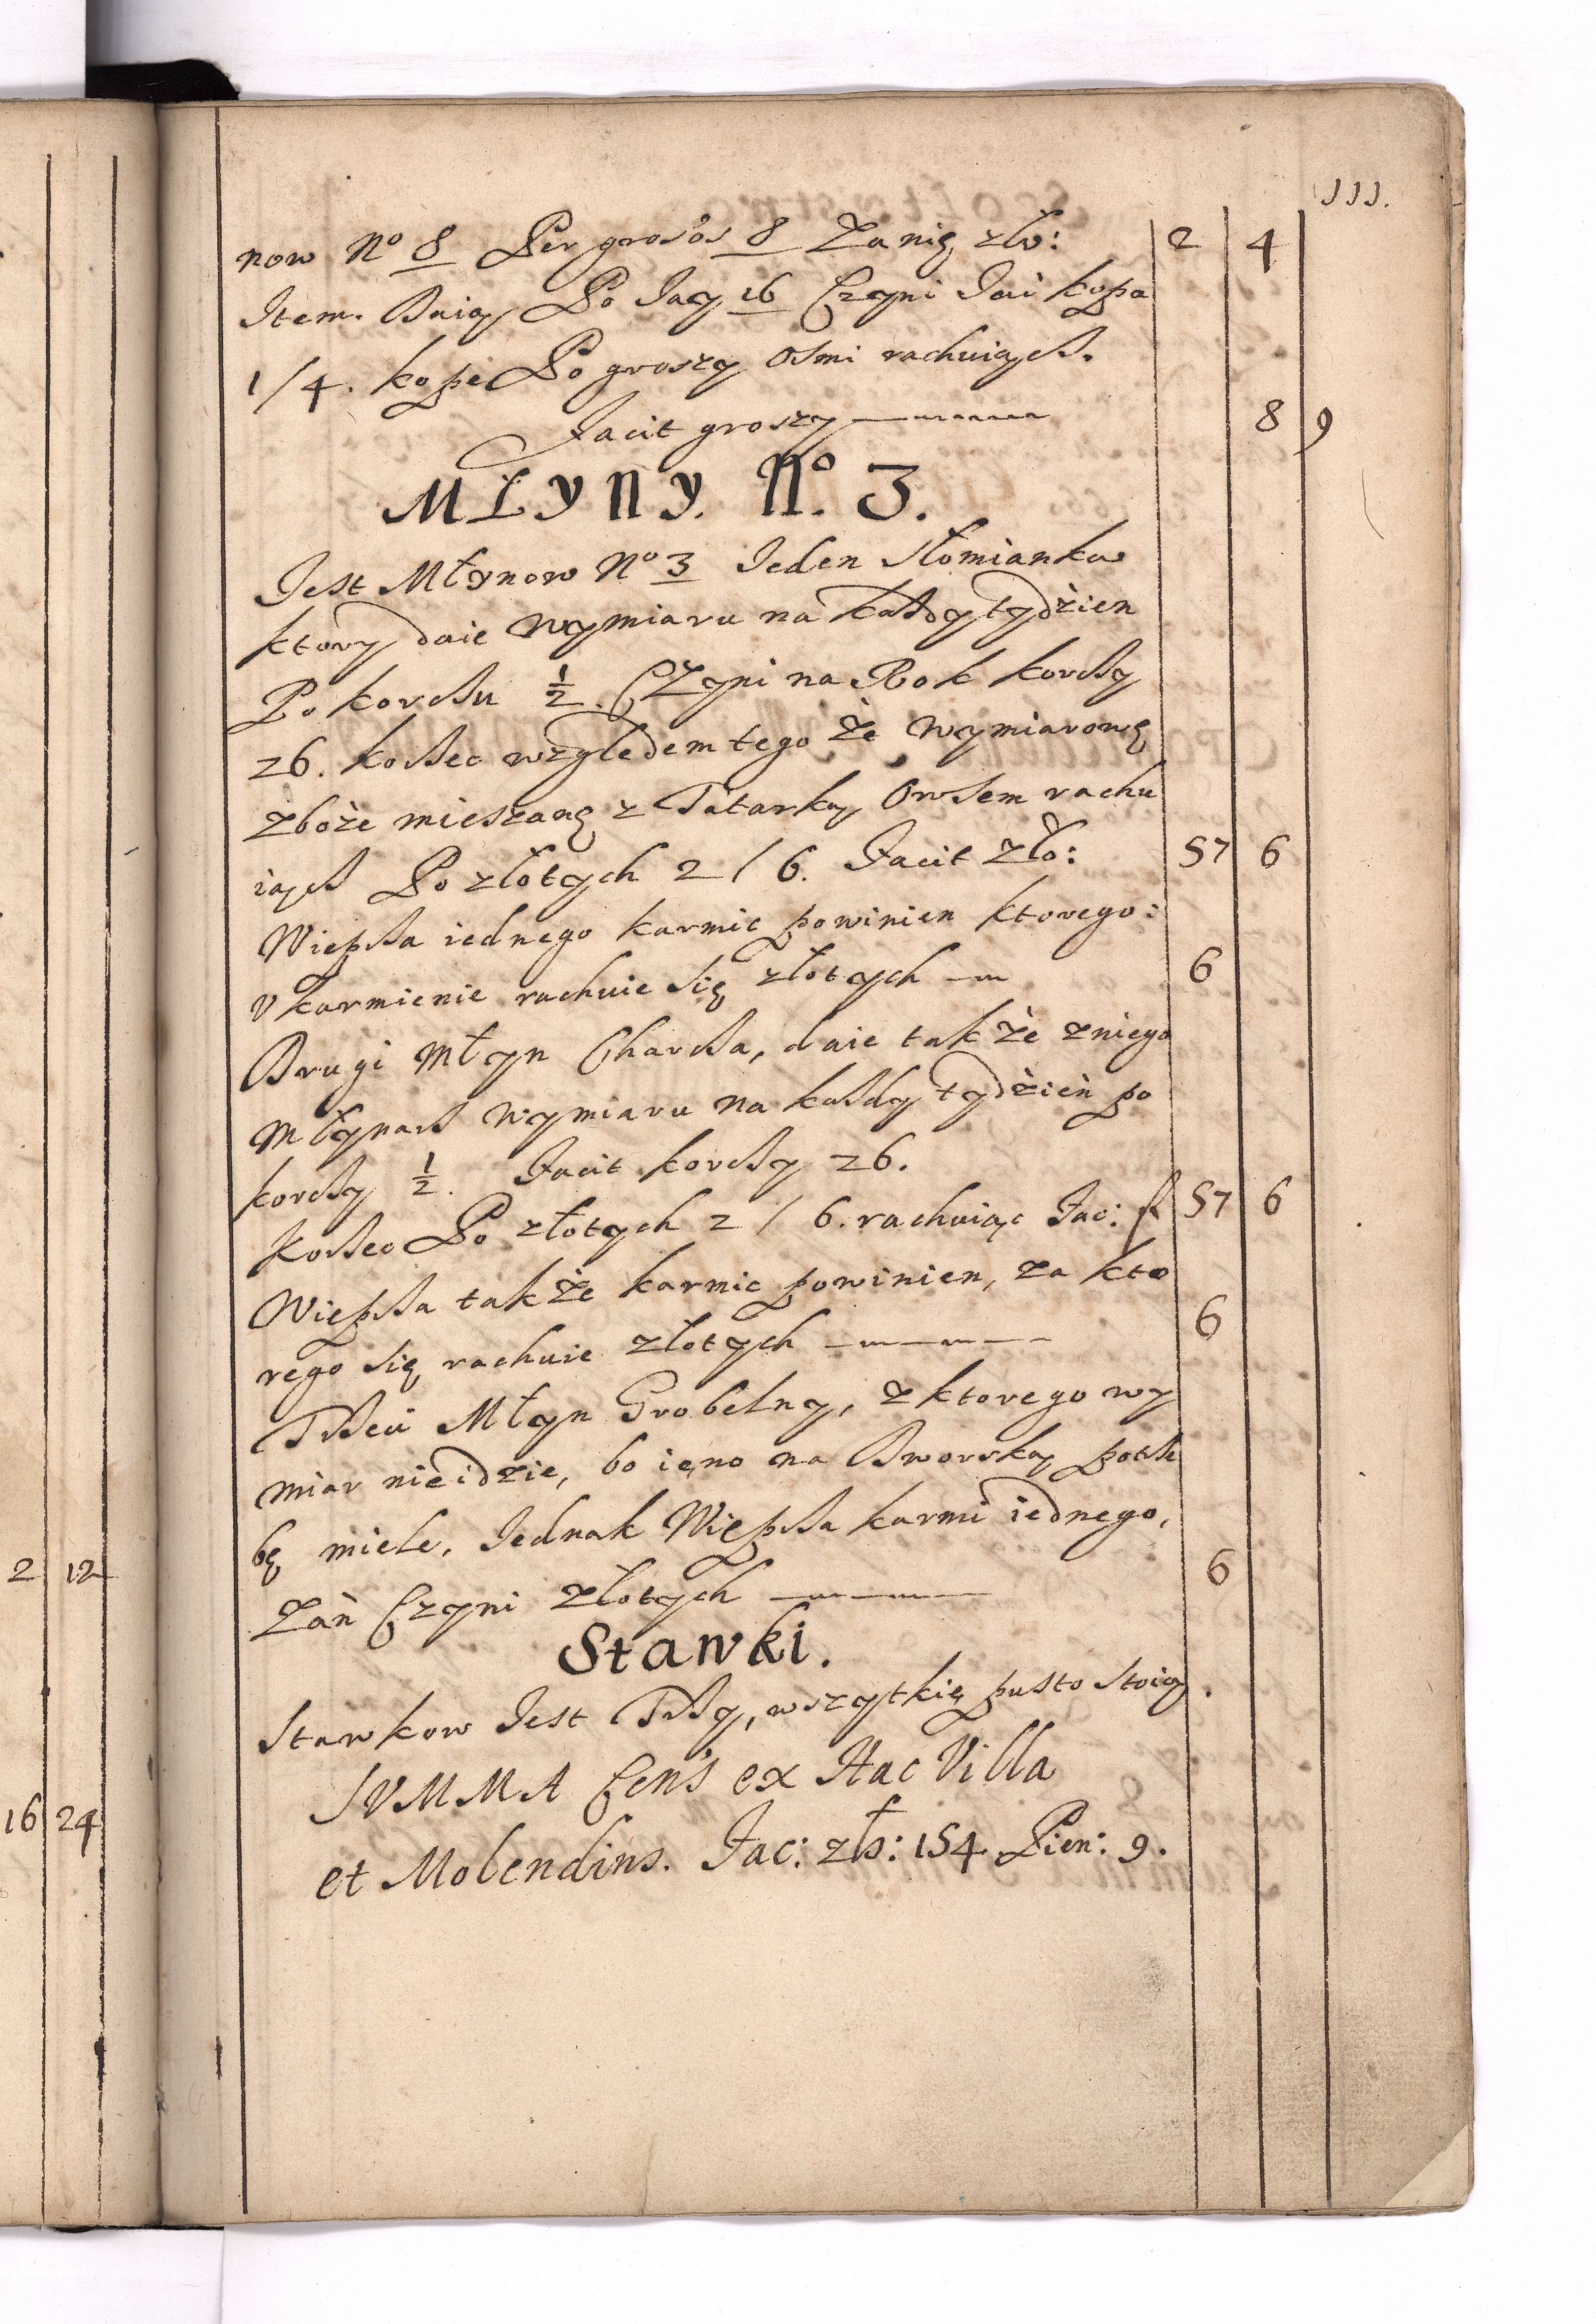 111.
now No 8 Per grosos 8 Za nię zło: 2 4
Item. Daią Po Jaÿ 16 Czyni Jai kopa
1/4. kopę Po groszy osmi rachuiącz.
Facit groszy 8 9
MŁYNY. No. 3.
Jest Młynow No 3 Jeden Słomianka
ktory daie wymiaru na każdy tydźien
Po korczu ½. Czyni na Rok korczy
26. korzec względem tego że wymiarowę
zboże mieszanę z Tatarką Owsem rachu
iącz Po złotych 2 / 6. Facit zło: 57 6
Wieprza iednego karmic powinien ktorego:
vkarmienie rachuie się złotych 6
Drugi młyn Charcza, daie także zniego
młynarz wymiaru na każdy tydźień po
korczy ½. Facit korczy 26.
korzec Po złotych 2 / 6. rachuiąc Fac: fl 57 6
Wieprza także karmic powinien, za kto
rego się rachuie złotych 6
Trzeci Młyn Grobelny, z ktorego wy
miar nieidzie, bo ieno na Dworską potrze
bę miele, Jednak Wieprza karmi iednego,
Zań Czyni złotych 6
Stawki.
Stawkow Jest Trzy, wszytkię pusto stoią.
SVMMA Cens ex Hac Villa
et Molendins. Fac: zło: 154 Pien: 9.
2 12
16 24